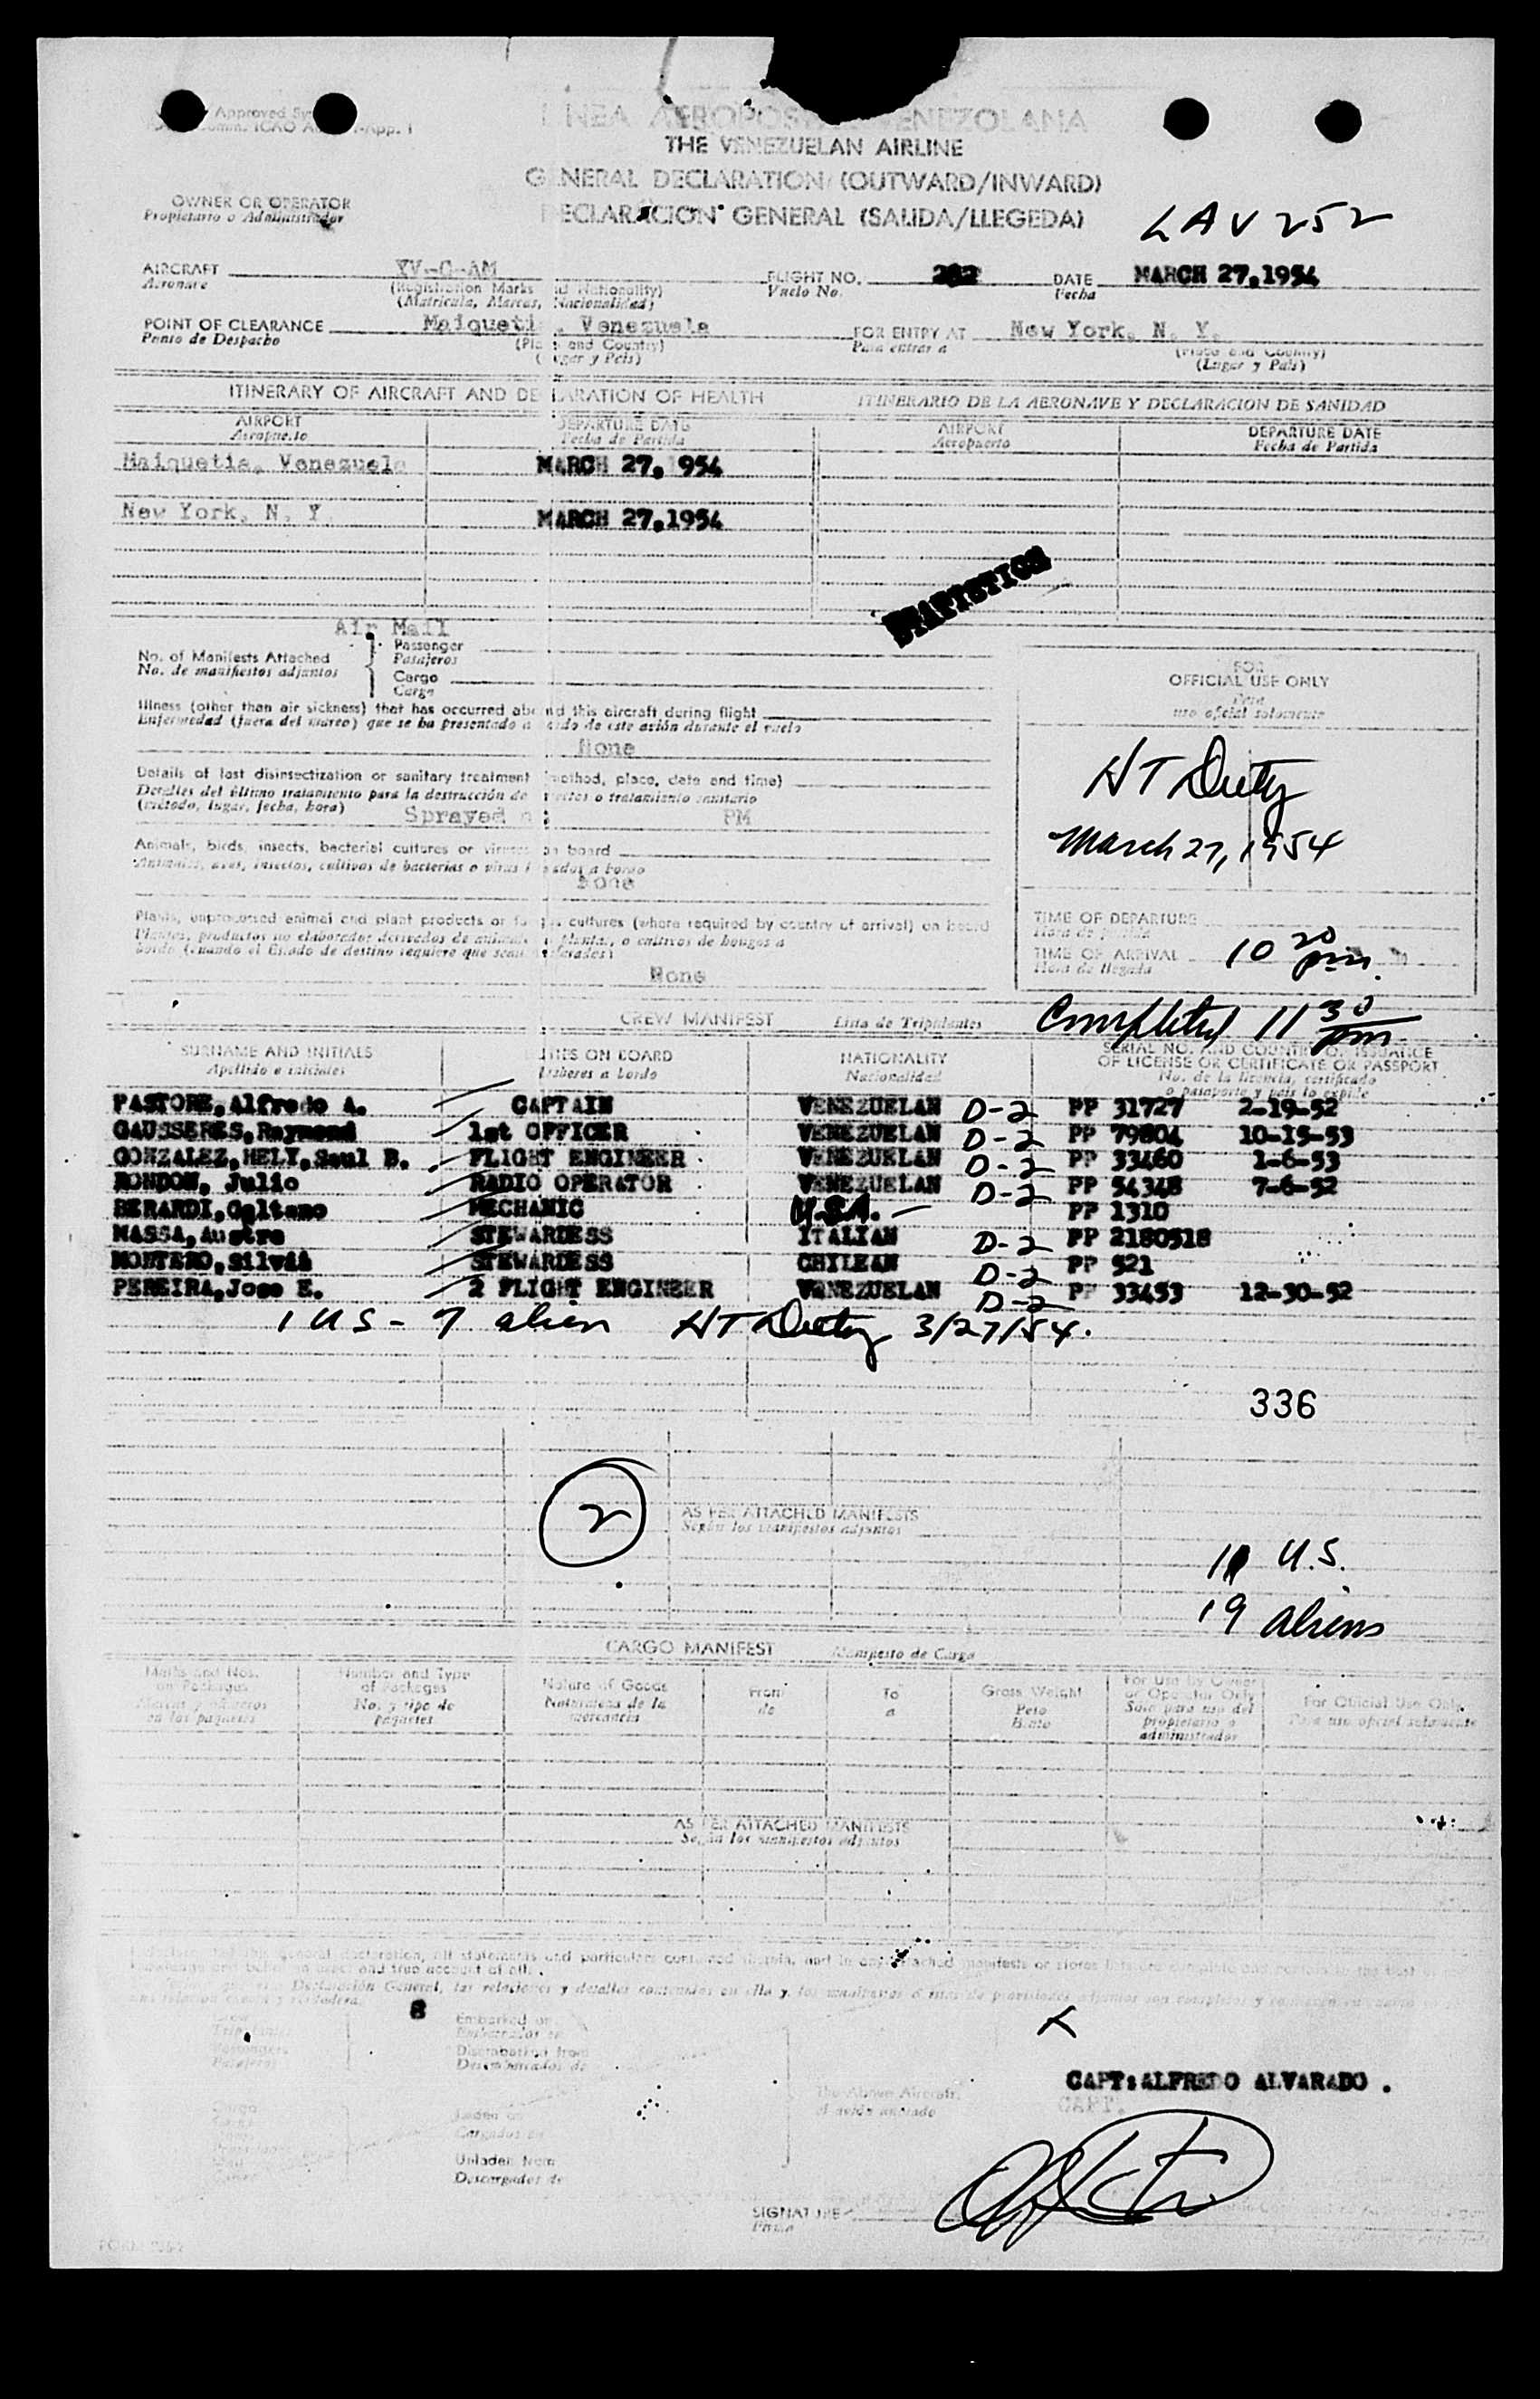 Approved
LINEA AEROPOSTAL VENEZOLANA
THE VENEZUELAN AIRLINE
GENERAL DECLARATION (OUTWARD/INWARD)
DECLARACION GENERAL (SALIDA/LLEGEDA)
LAV 252
OWNER OR OPERATOR
Propietario o Administrador
AIRCRAFT YV-C-AM
Aeronave
(Registration Marks and Nationality)
(Matricula, Marcas, Nacionalidad)
FLIGHT NO.
Vuelo No.
DATE MARCH 27,1954
Fecha
POINT OF CLEARANCE Maiquetia, Venezuela
Punto de Despacho
(Place and Country)
(Lugar y Pais)
FOR ENTRY AT New York, N. Y.
Para entrar a
(Place and Country)
(Lugar y Pais)
ITINERARY OF AIRCRAFT AND DECLARATION OF HEALTH ITINERARIO DE LA AERONAVE Y DECLARACION DE SANIDAD
AIRPORT DEPARTURE DATE AIRPORT DEPARTURE DATE
Aeropuerto Fecha de Partida Aeropuerto Fecha de Partida
Maiquetia, Venezuela MARCH 27, 954
New York, N. Y. MARCH 27,1954
STATISTICS
Air Mail
No. of Manifests Attached
No. de manifiestos adjuntos
Passenger
Pasajeros
Cargo
Carga
Illness (other than air sickness) that has occurred aboard this aircraft during flight
Enfermedad (fuera del mareo) que se ha presentado a bordo de este avión durante el vuelo
None
Details of last disinsectization or sanitary treatment (method, place, date and time)
Detalles del último tratamiento para la destrucción de insectos o tratamiento sanitario
(método, lugar, fecha, hora)
Sprayed PM
Animals, birds, insects, bacterial cultures or viruses on board
Animales, aves, insectos, cultivos de bacterias o virus a bordo
None
Plants, unprocessed animal and plant products or fungus cultures (where required by country of arrival) on board
Plantas, productos no elaborados derivados de animales o plantas, o cultivos de hongos a
bordo (cuando el Estado de destino requiere que sean
None
FOR
OFFICIAL USE ONLY
Para
uso oficial solamente
March 27, 1954
TIME OF DEPARTURE
Hora de partida
TIME OF ARRIVAL 10 20 pm.
Hora de llegada
Completed 11 30 pm
CREW MANIFEST Lista de Tripulantes
SURNAME AND INITIALS DUTIES ON BOARD NATIONALITY SERIAL NO. AND COUNTRY OF ISSUANCE
OF LICENSE OR CERTIFICATE OR PASSPORT
Apellido e iniciales Deberes a bordo Nacionalidad No. de la licencia, certificado
o pasaporte y país lo expide
PASTORE, Alfredo A. CAPTAIN VENEZUELAN D-2 PP 31727 2-19-52
GAUSSERES, Raymond 1st OFFICER VENEZUELAN D-2 PP 79804 10-15-53
GONZALEZ, HELY, Saul B. FLIGHT ENGINEER VENEZUELAN D-2 PP 33460 1-6-53
RONDON, Julio RADIO OPERATOR VENEZUELAN D-2 PP 54348 7-6-52
BERARDI, MECHANIC U.S.A. - PP 1310
MASSA, Austra STEWARDESS ITALIAN D-2 PP 2180518
MONTERO, Silvia STEWARDESS CHILEAN D-2 PP 521
PEREIRA, Jose E. 2 FLIGHT ENGINEER VENEZUELAN D-2 PP 33453 12-30-52
1 US - 7 alien 3/27/54.
336
2
AS PER ATTACHED MANIFESTS
Según los manifiestos adjuntos
U.S.
19 aliens
CARGO MANIFEST Manifiesto de Carga
Marks and Nos. on Packages
Marcas y números en los paquetes
Number and Type of Packages
No. y tipo de paquetes
Nature of Goods
Naturaleza de la mercancía
From
de
To
a
Gross Weight
Peso Bruto
For Use by Owner or Operator Only
Solo para uso del propietario o administrador
For Official Use Only
Para uso oficial solamente
AS PER ATTACHED MANIFESTS
Según los manifiestos adjuntos
general declaration, all statements and particulars contained therein, and in any attached manifests or stores
and true account of all.
Declaración General, las relaciones y detalles contenidos en ella y
8
Embarked on
Disembarked from
Desembarcados de
The Above Aircraft
el avión anotado
Laden on
Cargados en
Unladen from
Descargados de
CAPT: ALFREDO ALVARADO .
CAPT.
SIGNATURE
Firma